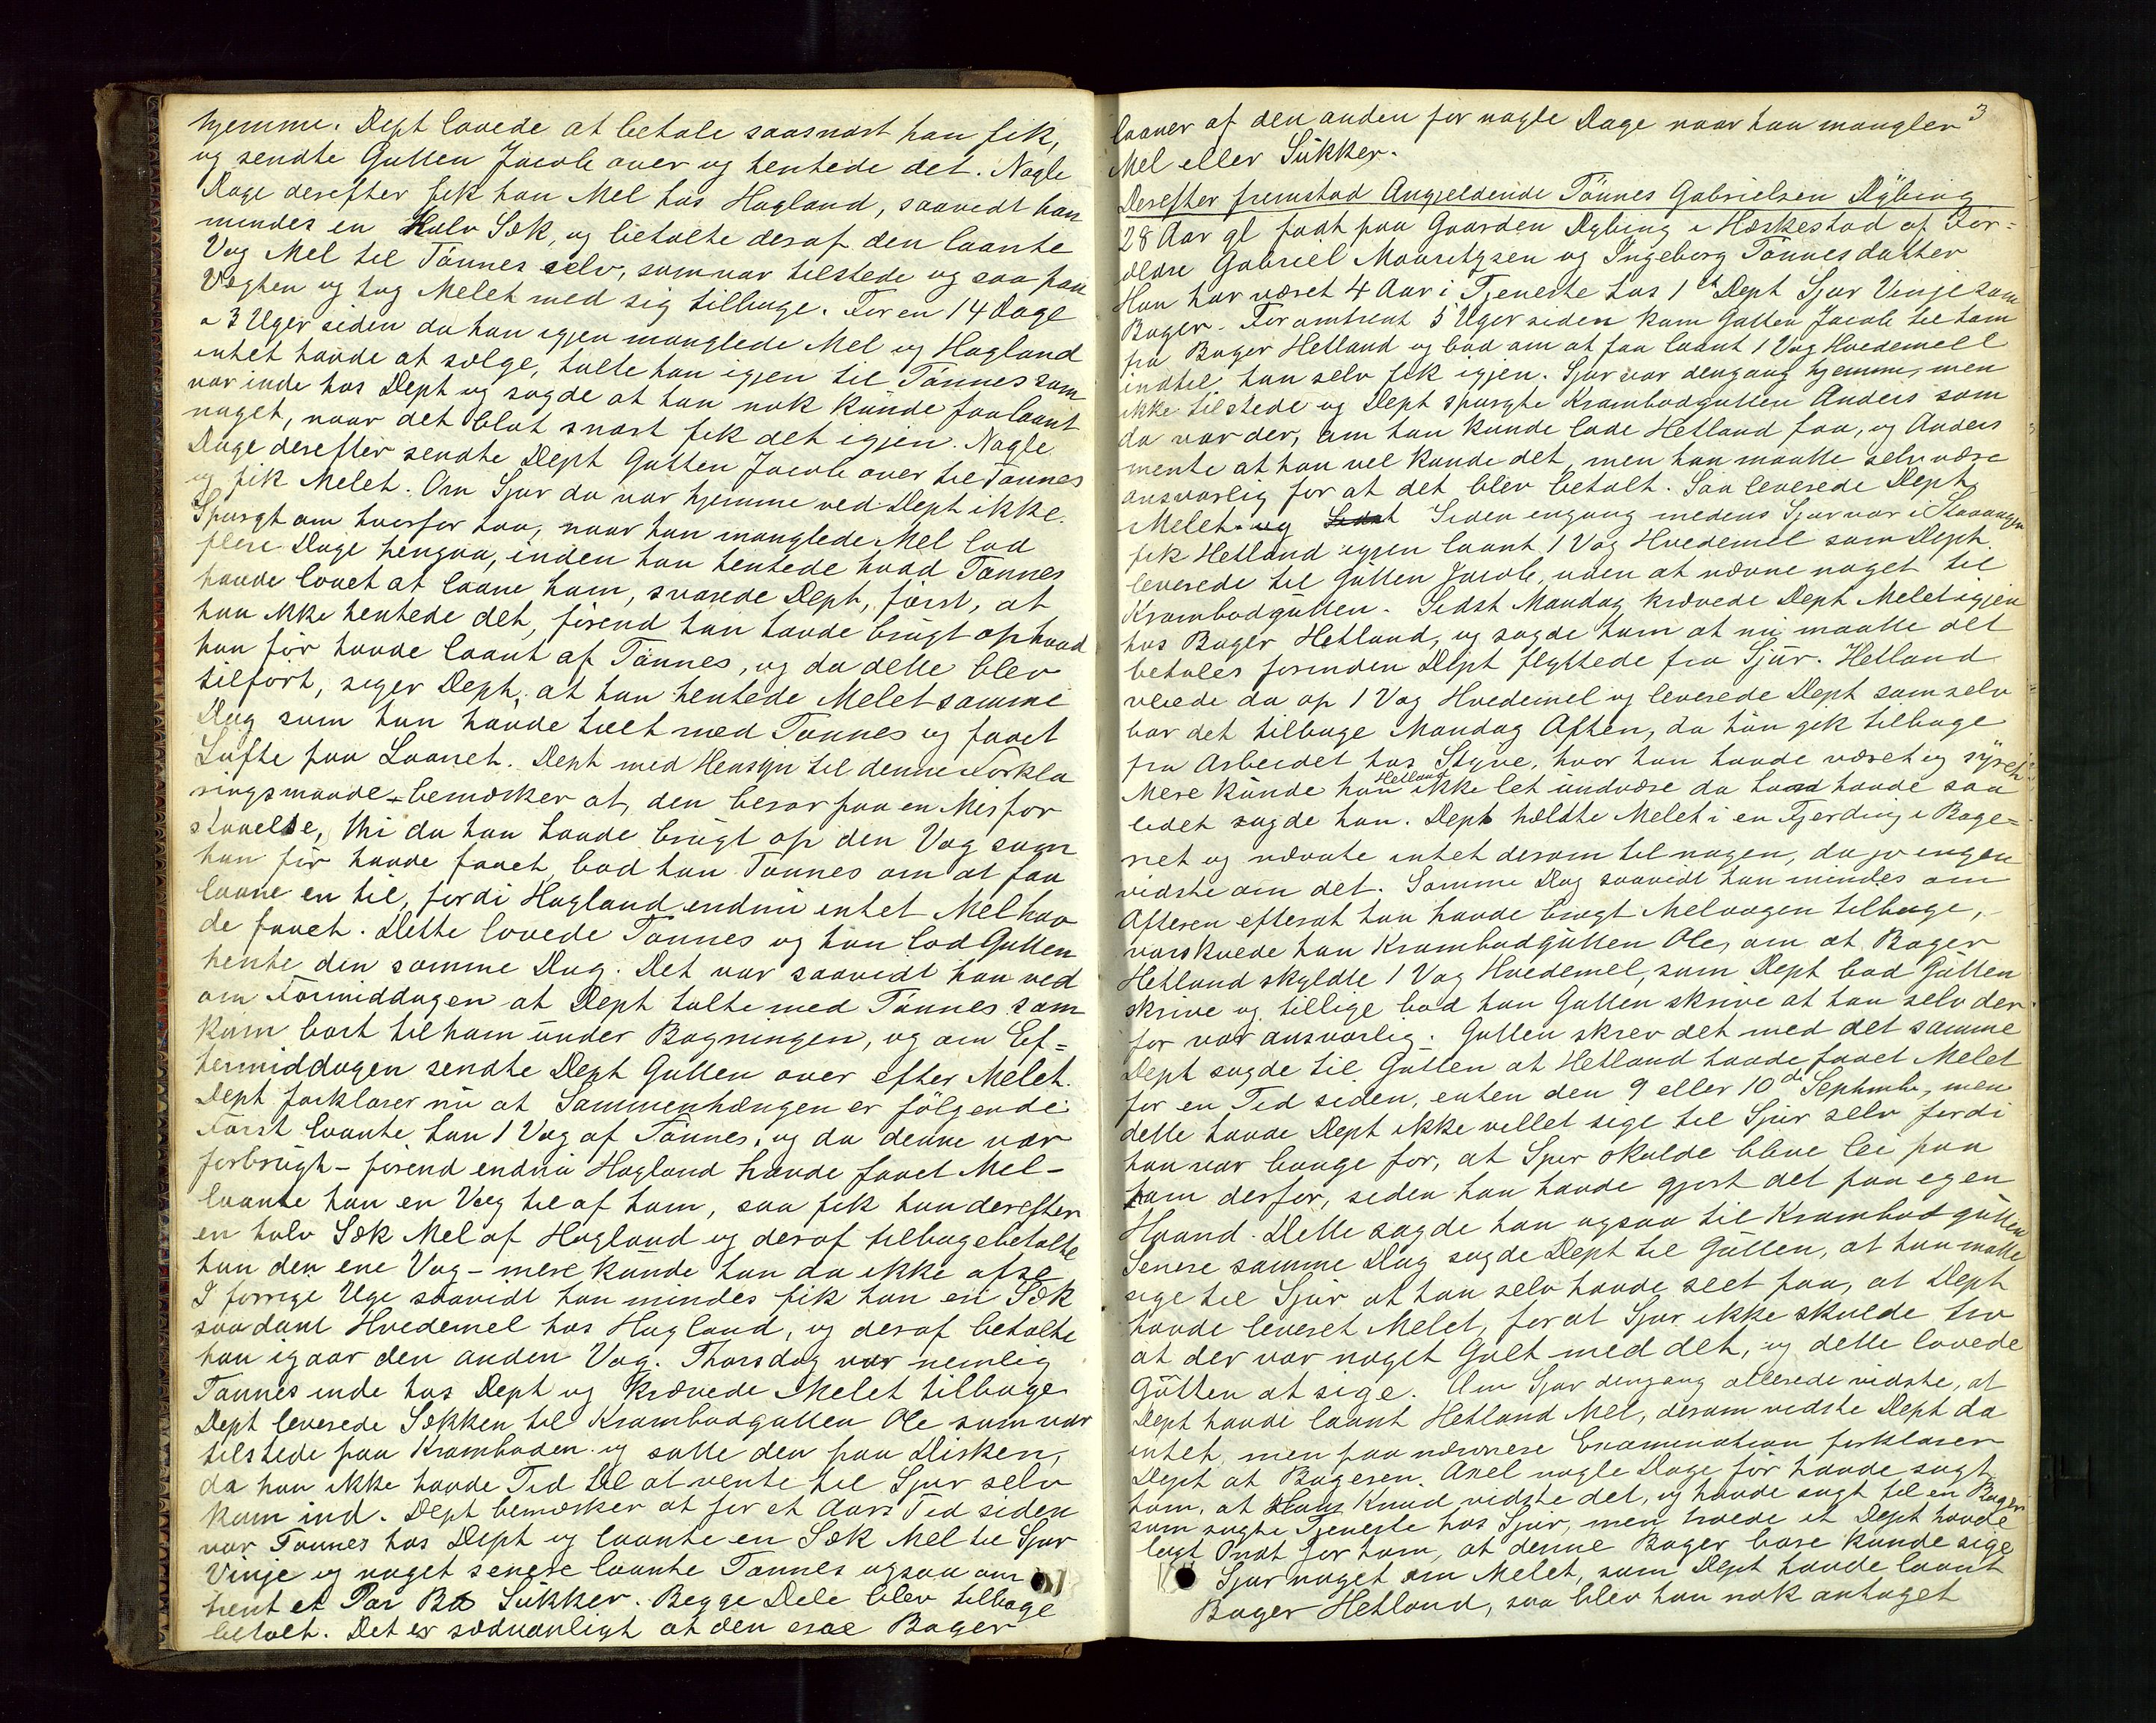 hjemme. Dept lovede at betale saasnart han fik,
og sendte Gutten Jacob over og hentede det. Nogle
Dage derefter fik han Mel hos Hagland, saavidt han
mindes en Halv Sæk, og betalte deraf den laante
Vog Mel til Tönnes selv, som var tilstede og saa paa
Vegten og tog Melet med sig tilbage. For en 14 Dage
a 3 Uger siden da han igjen manglede Mel og Hagland
intet havde at sælge, talte han igjen til Tönnes som
var inde hos Dept og sagde at han nok kunde faa laant
noget, naar det blot snart fik det igjen. Nogle
Dage derefter sendte Dept Gutten Jacob over til Tönnes
og fik Melet. Om Sjur da var hjemme ved Dept ikke.
Spurgt om hvorfor han, naar han manglede Mel lod
flere Dage hengaa, inden han hentede hvad Tønnes
havde lovet at laane ham, svarede Dept, først, at
han ikke hentede det, førend han havde brugt op hvad
han før havde laant af Tønnes, og da dette blev
tilført, siger Dept, at han hentede Melet samme
Dag som han havde talt med Tønnes og faaet
Løfte paa Laanet. Dept med Hensyn til denne Forkla
ringsmaade bemærker at, den beror paa en Misfor
staaelse, thi da han havde brugt op den Vog som
han før havde faaet, bad han Tønnes om at faa
laane en til, fordi Hagland endnu intet Mel hav
de faaet. Dette lovede Tønnes og han lod Gutten
hente den samme Dag. Det var saavidt han ved
om Formiddagen at Dept talte med Tönnes som
kom bort til ham under Bagningen, og om Ef=
termiddagen sendte Dept Gutten over efter Melet.
Dept forklarer nu at Sammenhængen er følgende:
Først laante han 1 Vog af Tønnes, og da denne var
forbrugt – førend endnu Hagland havde faaet Mel –
laante han en Vog til af ham, saa fik han derefter
en halv Sæk Mel af Hagland og deraf tilbagebetalte
han den ene Vog – mere kunde han da ikke afse
I forrige Uge saavidt han mindes fik han en Sæk
saadant Hvedemel hos Hagland, og deraf betalte
han igaar den anden Vog. Thorsdag var nemlig
Tønnes inde hos Dept og krævede Melet tilbage
Dept leverede Sækken til Krambodgutten Ole som var
tilstede paa Kramboden og satte den paa Disken,
da han ikke havde Tid til at vente til Sjur selv
kom ind. Dept bemærker at for et Aars Tid siden
var Tønnes hos Dept og laante en Sæk Mel til Sjur
Vinje og noget senere laante Tønnes ogsaa om
trent et Par Sukker. Begge Dele blev tilbage
betalt. Det er sædvanligt at den ene Bager
3
laaner af den anden for nogle Dage naar han mangler
Mel eller Sukker.
Derefter fremstod Angjeldende Tönnes Gabrielsen Dybing
28 Aar gl født paa Gaarden Dybing i Hæskestad af For=
ældre Gabriel Mauritzsen og Ingeborg Tönnesdatter
Han har været 4 Aar i Tjeneste hos 1ste Dept Sjur Vinje som
Bager. For omtrent 5 Uger siden kom Gutten Jacob til ham
fra Bager Hetland og bad om at faa laant 1 Vog Hvedemel
indtil han selv fik igjen. Sjur var dengang hjemme, men
ikke tilstede og Dept spurgte Krambodgutten Anders som
da var der, om han kunde lade Hetland faa, og Anders
mente at han vel kunde det, men han maatte selv være
ansvarlig for at det blev betalt. Saa leverede Dept
Melet. og Sidst Siden engang medens Sjur var i Stavanger
fik Hetland igjen laant 1 Vog Hvedemel som Dept
leverede til Gutten Jacob, uden at nævne noget til
Krambodgutten. Sidst Mandag krævede Dept Melet igjen
hos Bager Hetland, og sagde ham at nu maatte det
betales forinden Dept flyttede fra Sjur. Hetland
veiede da op 1 Vog Hvedemel og leverede Dept som selv
bar det tilbage Mandag Aften, da han gik tilbage
fra Arbeidet hos Styve, hvor han havde været og
Mere kunde han Hetland ikke let undvære da han havde saa
lidet sagde han. Dept hældte Melet i en Fjerding i Bage=
riet og nævnte intet derom til nogen, da jo ingen
vidste om det. Samme Dag saavidt han mindes om
Aftenen efterat han havde bragt Melvogen tilbage,
varskuede han Krambodgutten Ole, om at Bager
Hetland skyldte 1 Vog Hvedemel, som Dept bad Gutten
skrive og tillige bad han Gutten skrive at han selv der
for var ansvarlig. Gutten skrev det med det samme
Dept sagde til Gutten at Hetland havde faaet Melet
for en Tid siden, enten den 9 eller 10de Septembr, men
dette havde Dept ikke villet sige til Sjur selv fordi
han var bange for, at Sjur skulde blive lei paa
ham derfor, siden han havde gjort det paa egen
Haand. Dette sagde han ogsaa til Krambodgutten
Senere samme Dag sagde Dept til Gutten, at han maatte
sige til Sjur at han selv havde seet paa, at Dept
havde leveret Melet, forat Sjur ikke skulde tro
at der var noget Galt med det, og dette lovede
Gutten at sige. Om Sjur dengang allerede vidste, at
Dept havde laant Hetland Mel, derom vidste Dept da
intet, men paa nærmere Examination forklarer
Dept at Bageren Axel nogle Dage før havde sagt
ham, at Knud vidste det, og havde sagt til en Bager
som søgte Tjeneste hos Sjur, men troede at Dept havde
lagt Ondt for ham, at denne Bager bare kunde sige
Sjur noget om Melet, som Dept havde laant
Bager Hetland, saa blev han nok antaget